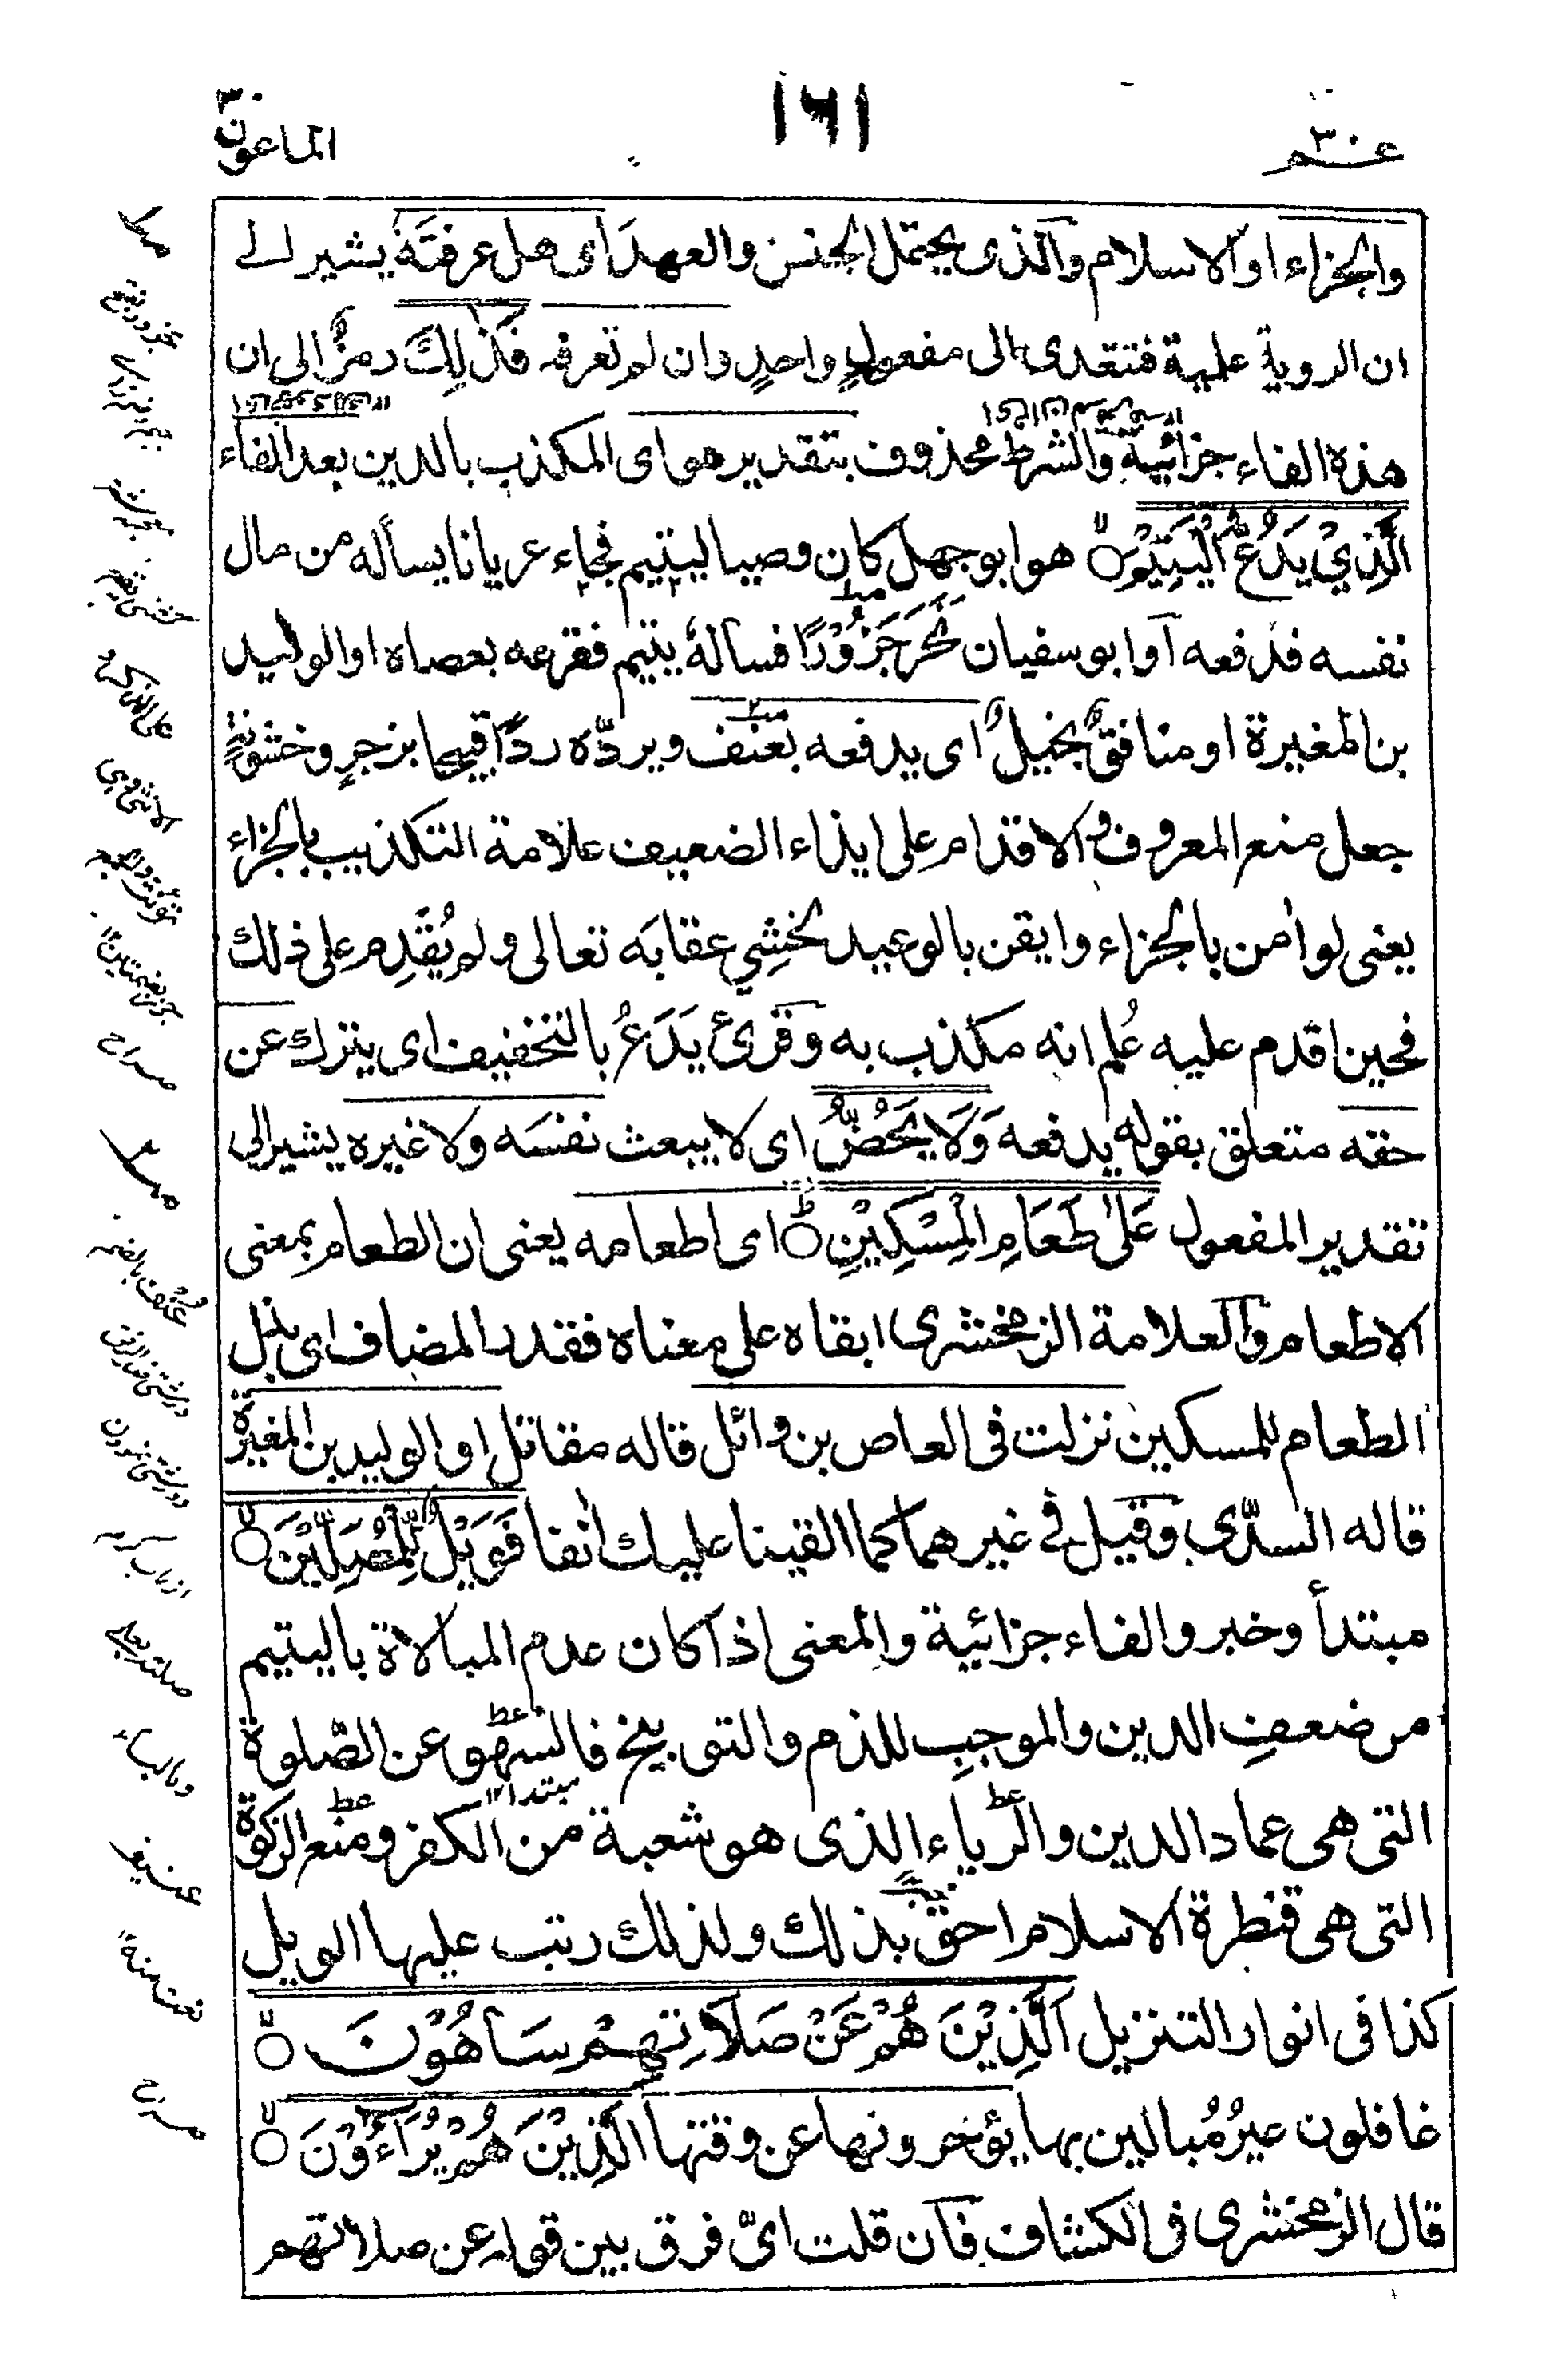 عم ٣٠
١٦١
الماعون ٣٠
والجزاء او الاسلام والذى يحتمل الجنس والعهد اى هل عرفته يشير الے
ان الروية علمية فتتعدى الى مفعولٍ واحدٍ وان لم تعرفه فَذٰلِكَ رمزٌ الى ان
هذه الفاء جزائية والشرط محذوف بتقدير هو اى المكذب بالدين بعد الفاء
الَّذِيْ يَدُعُّ الْيَتِيْمَ هو ابو جهل كان وصيا ليتيم فجاء عريانا يسأله من مال
نفسه فدفعه او ابو سفيان نَحَرَ جَزُوْرًا فسالهٗ يتيم فقرعه بعصاه او الوليد
بن المغيرة او منافقٌ بخيلٌ اى يدفعه بعنف ويردّه ردًّا قبيحا بزجرٍ وخشونةٍ
جعل منع المعروف والاقدام على ايذاء الضعيف علامة التكذيب بالجزاء
يعنى لو اٰمن بالجزاء وايقن بالوعيد لخشِي عقابَه تعالى ولم يُقْدِم على ذلك
فحين اقدم عليه عُلم انه مكذب به وقرئ يَدَعُ بالتخفيف اى يترك عن
حقه متعلق بقوله يدفعه وَلَا يَحُضُّ اى لا يبعث نفسَه ولا غيره يشير الى
تقدير المفعول عَلٰى طَعَامِ الْمِسْكِيْنِ اى اطعامه يعنى ان الطعام بمعنى
الاطعام والعلامة الزمخشرى ابقاه على معناه فقدر المضاف اى بذل
الطعام للمسكين نزلت فى العاص بن وائل قاله مقاتل او الوليد بن المغيرة
قاله السدّى وقيل فى غيرهما كما القينا عليك اٰنفا فَوَيْلٌ لِّلْمُصَلِّيْنَ
مبتدأ وخبر والفاء جزائية والمعنى اذا كان عدم المبالاة باليتيم
من ضعفِ الدين والموجبِ للذم والتوبيخ فالسهو عن الصّلوة
مبتدا ١٢
التى هى عماد الدين والرياء الذى هو شعبة من الكفر ومنع الزكوة
التى هى قنطرة الاسلام احق بذلك ولذلك رتب عليها الويل
كذا فى انوار التنزيل الَّذِيْنَ هُمْ عَنْ صَلَاتِهِمْ سَاهُوْنَ
غافلون غيرُ مُبالين بها يؤخرونها عن وقتها الَّذِيْنَ هُمْ يُرَآءُوْنَ
قال الزمخشرى فى الكشاف فان قلت اىّ فرق بين قوله عن صلاتهم
صراح
عُنف بالضم